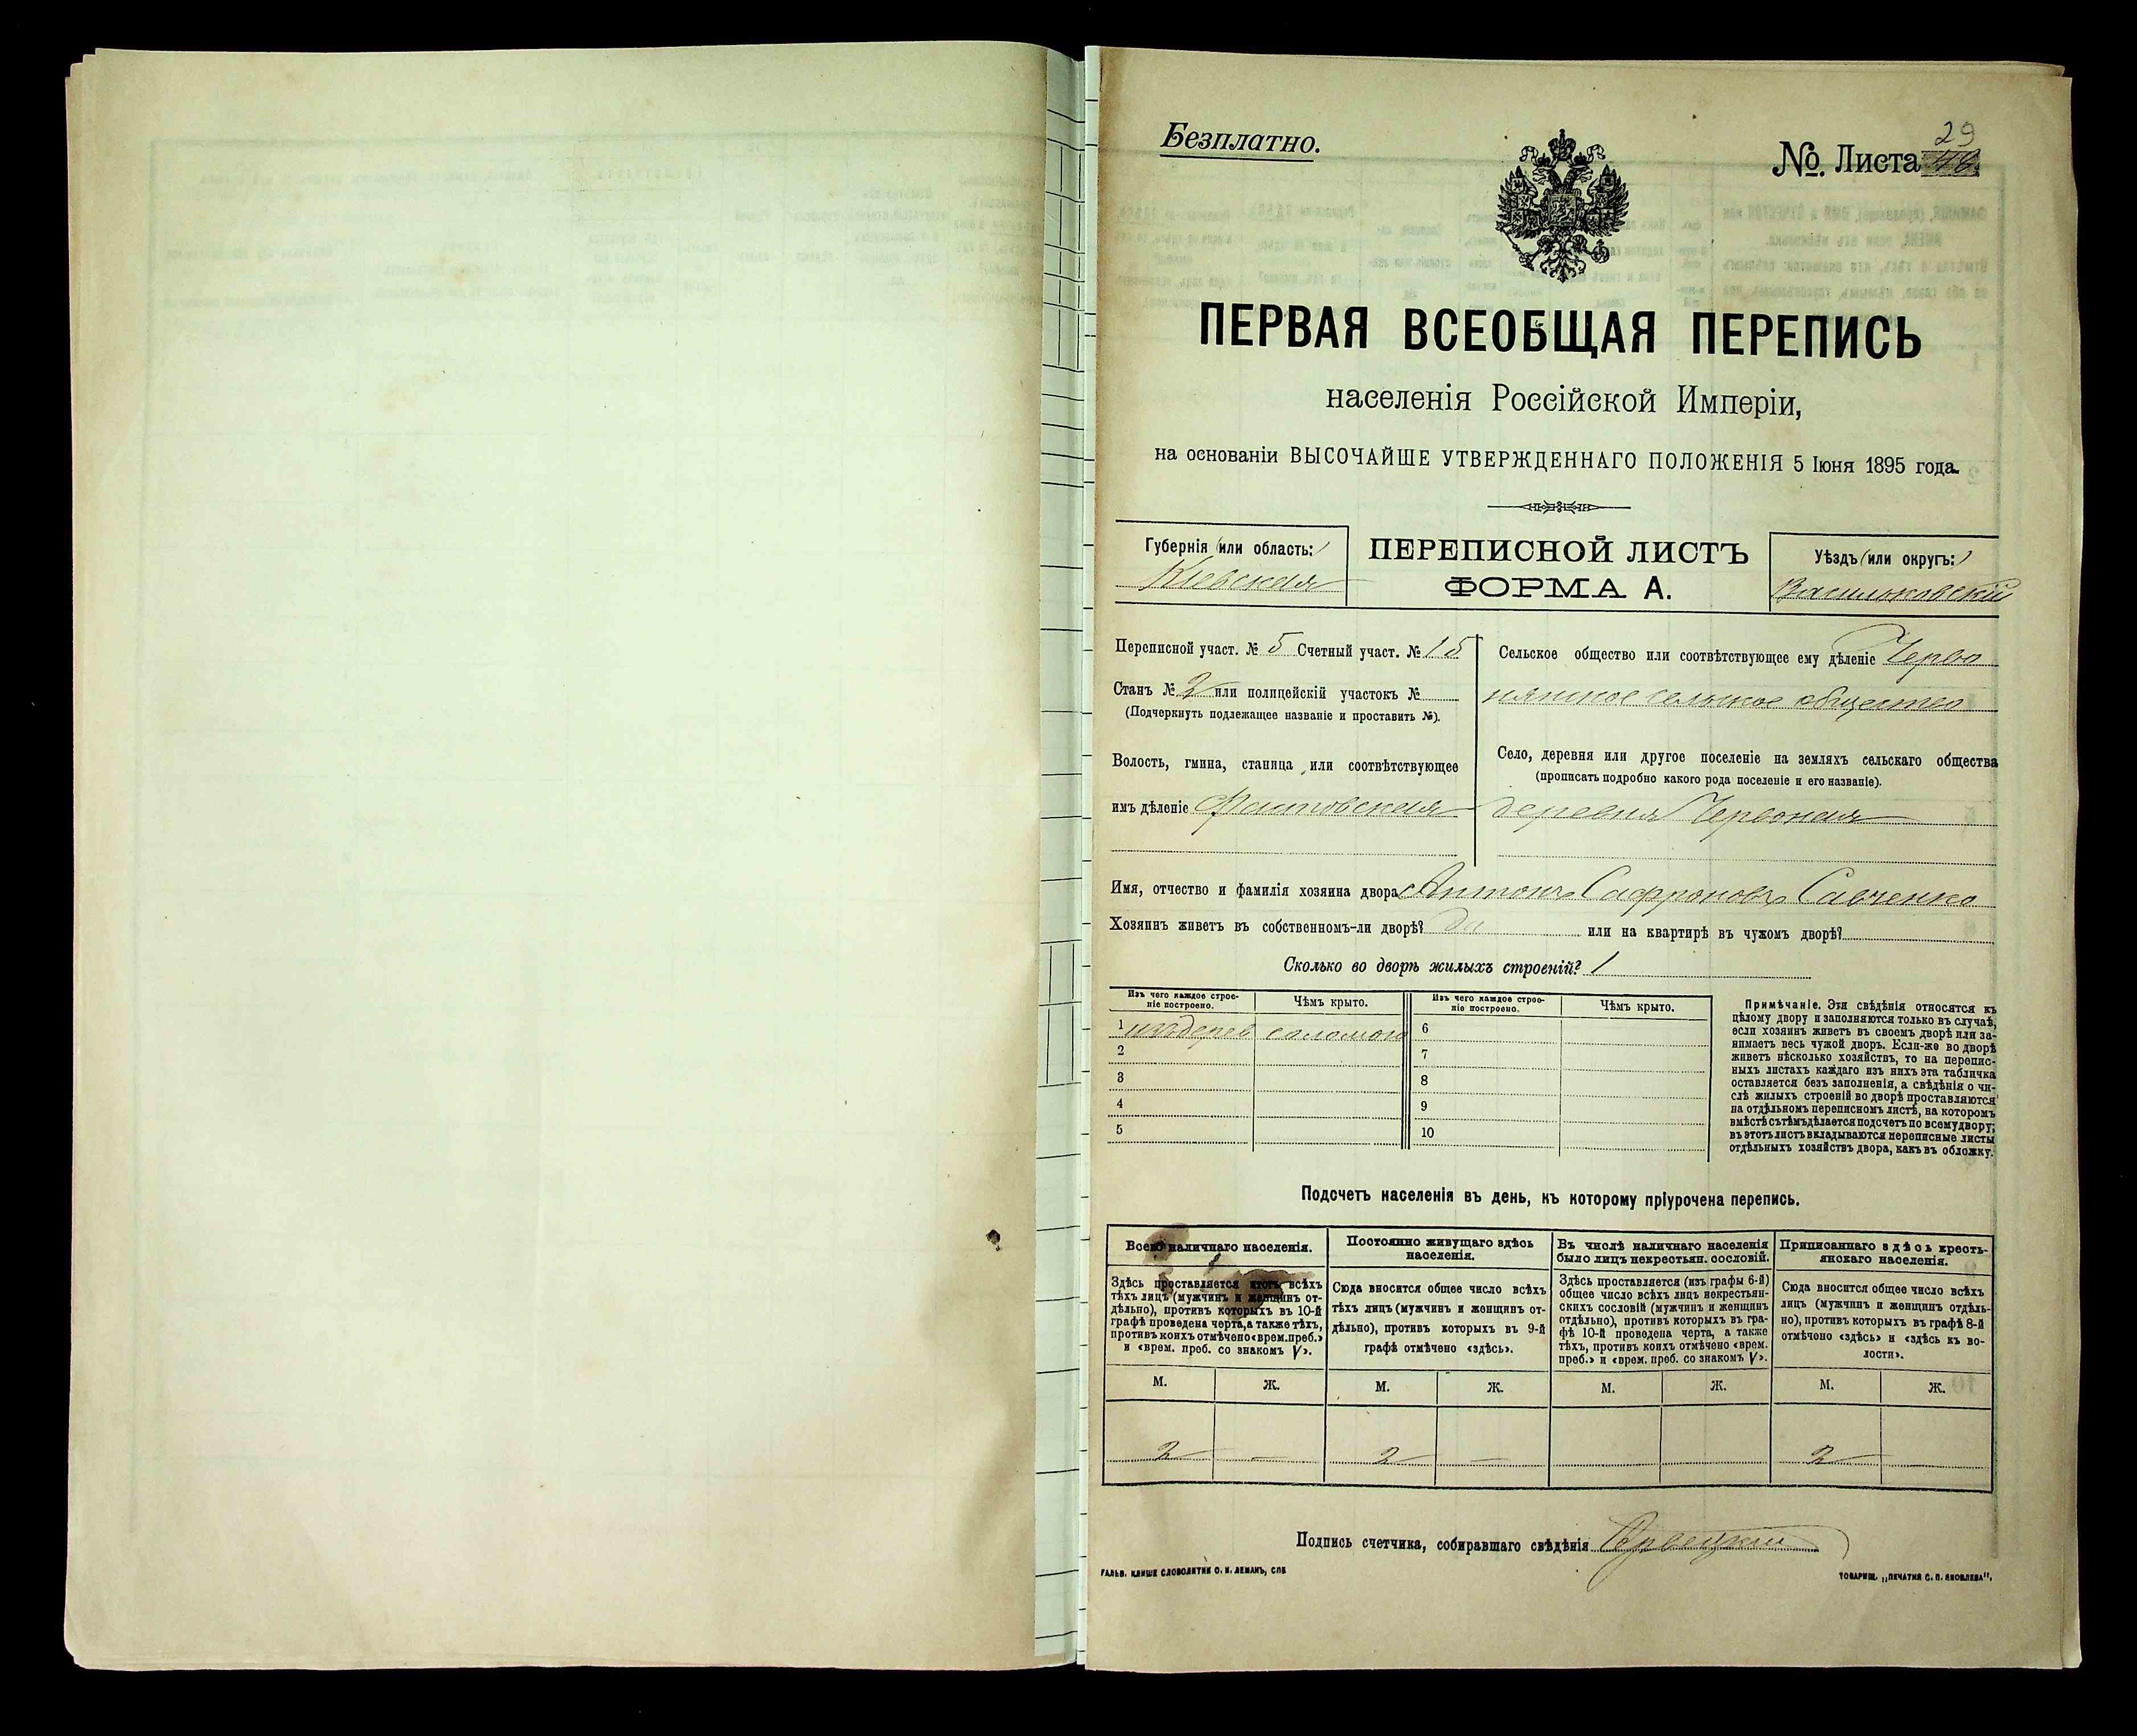 Безплатно.
29
№. Листа
ПЕРВАЯ ВСЕОБЩАЯ ПЕРЕПИСЬ
населенія Россійской Имперіи,
на основаніи ВЫСОЧАЙШЕ УТВЕРЖДЕННАГО ПОЛОЖЕНІЯ 5 Іюня 1895 года.
Губернія (или область:)
Кіевская
ПЕРЕПИСНОЙ ЛИСТЪ
ФОРМА А.
Уѣздъ (или округъ:)
Васильковскій
Переписной участ. № 5 Счетный участ. № 15
Станъ № 2 или полицейскій участокъ №
(Подчеркнуть подлежащее названіе и проставить №).
Волость, гмина, станица или соотвѣтствующее
имъ дѣленіе Фастовская
Сельское общество или соотвѣтствующее ему дѣленіе Черво
нянское сельское общество
Село, деревня или другое поселеніе на земляхъ сельскаго общества
(прописать подробно какого рода поселеніе и его названіе).
деревня Червоная
Имя, отчество и фамилія хозяина двора Антонъ Сафроновъ Савченко
Хозяинъ живетъ въ собственномъ-ли дворѣ? да или на квартирѣ въ чужомъ дворѣ?
Сколько во дворѣ жилыхъ строеній? 1
Изъ чего каждое строе-
ніе построено.
Чѣмъ крыто.
1 изъ дерев соломою
2
3
4
5
Изъ чего каждое строе-
ніе построено.
Чѣмъ крыто.
6
7
8
9
10
Примѣчаніе. Эти свѣдѣнія относятся къ
цѣлому двору и заполняются только въ случаѣ,
если хозяинъ живетъ въ своемъ дворѣ или за-
нимаетъ весь чужой дворъ. Если-же во дворѣ
живетъ нѣсколько хозяйствъ, то на перепис-
ныхъ листахъ каждаго изъ нихъ эта табличка
оставляется безъ заполненія, а свѣдѣнія о чи-
слѣ жилыхъ строеній во дворѣ проставляются
на отдѣльномъ переписномъ листѣ, на которомъ
вмѣстѣ съ тѣмъ дѣлается подсчетъ по всему двору;
въ этотъ листъ вкладываются переписные листы
отдѣльныхъ хозяйствъ двора, какъ въ обложку.
Подсчетъ населенія въ день, къ которому пріурочена перепись.
Всего наличнаго населенія.
Здѣсь проставляется итогъ всѣхъ
тѣхъ лицъ (мужчинъ и женщинъ от-
дѣльно), противъ которыхъ въ 10-й
графѣ проведена черта, а также тѣхъ,
противъ коихъ отмѣчено «врем. преб.»
и «врем. преб. со знакомъ V».
М. Ж.
2 —
Постоянно живущаго здѣсь
населенія.
Сюда вносится общее число всѣхъ
тѣхъ лицъ (мужчинъ и женщинъ от-
дѣльно), противъ которыхъ въ 9-й
графѣ отмѣчено «здѣсь».
М. Ж.
2 —
Въ числѣ наличнаго населенія
было лицъ некрестьян. сословій.
Здѣсь проставляется (изъ графы 6-й)
общее число всѣхъ лицъ некрестьян-
скихъ сословій (мужчинъ и женщинъ
отдѣльно), противъ которыхъ въ гра-
фѣ 10-й проведена черта, а также
тѣхъ, противъ коихъ отмѣчено «врем.
преб.» и «врем. преб. со знакомъ V».
М. Ж.
Приписаннаго здѣсь кресть-
янскаго населенія.
Сюда вносится общее число всѣхъ
лицъ (мужчинъ и женщинъ отдѣль-
но), противъ которыхъ въ графѣ 8-й
отмѣчено «здѣсь» и «здѣсь къ во-
лости».
М. Ж.
2 —
Подпись счетчика, собиравшаго свѣдѣнія
ГАЛЬВ. КЛИШЕ СЛОВОЛИТНИ О. И. ЛЕМАНЪ, СПБ
ТОВАРИЩ. „ПЕЧАТНЯ С. П. ЯКОВЛЕВА",